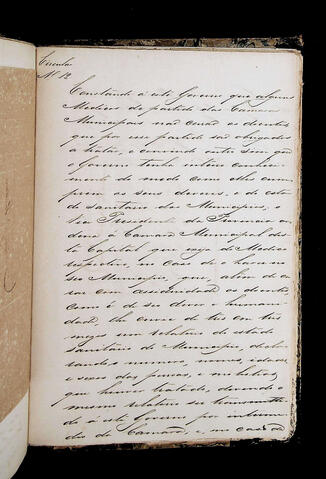 Circular
N. 12
Constando á este Governo que alguns
Medicos de partido das Camaras
Municipais não curão os doentes
que por esse partido são obrigados
a tratar, e convindo outro sim que
o Governo tenha inteiro conheci-
mento do modo com elles cum-
prem os seus deveres, e do esta-
do sanitario dos Municipios, o
Presidente da Provincia or-
dena á Camara Municipal des-
ta Capital que exija do Medico
respectivo, no caso de o haver no
seo Municipio, que, alem de cu-
rar com assiduidade os doentes,
como é do seu dever e humani-
dade, lhe envie de tres em tres
mezes um relatorio do estado
sanitario do Municipio, decla-
rando o numero, nomes, idades
e sexos das pessoas, molestias
que houver tratado, devendo o
mesmo relatorio ser transmitti-
do á este Governo por interme-
dio da Camara, e no caso de